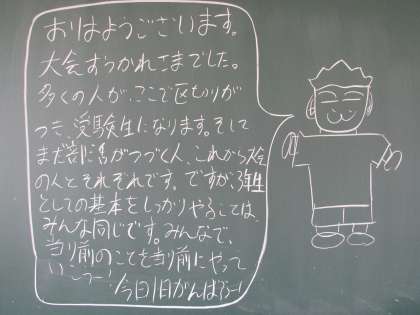 おはようございます。
大会おつかれさまでした。
多くの人が、ここで区切りが
つき、受験生になります。そして
まだ部活がつづく人、これから大会
の人とそれぞれです。ですが、3年生
としての基本をしっかりやることは、
みんな同じです。みんなで、
当り前のことを当り前にやって
いこうー!
今日1日がんばろー!